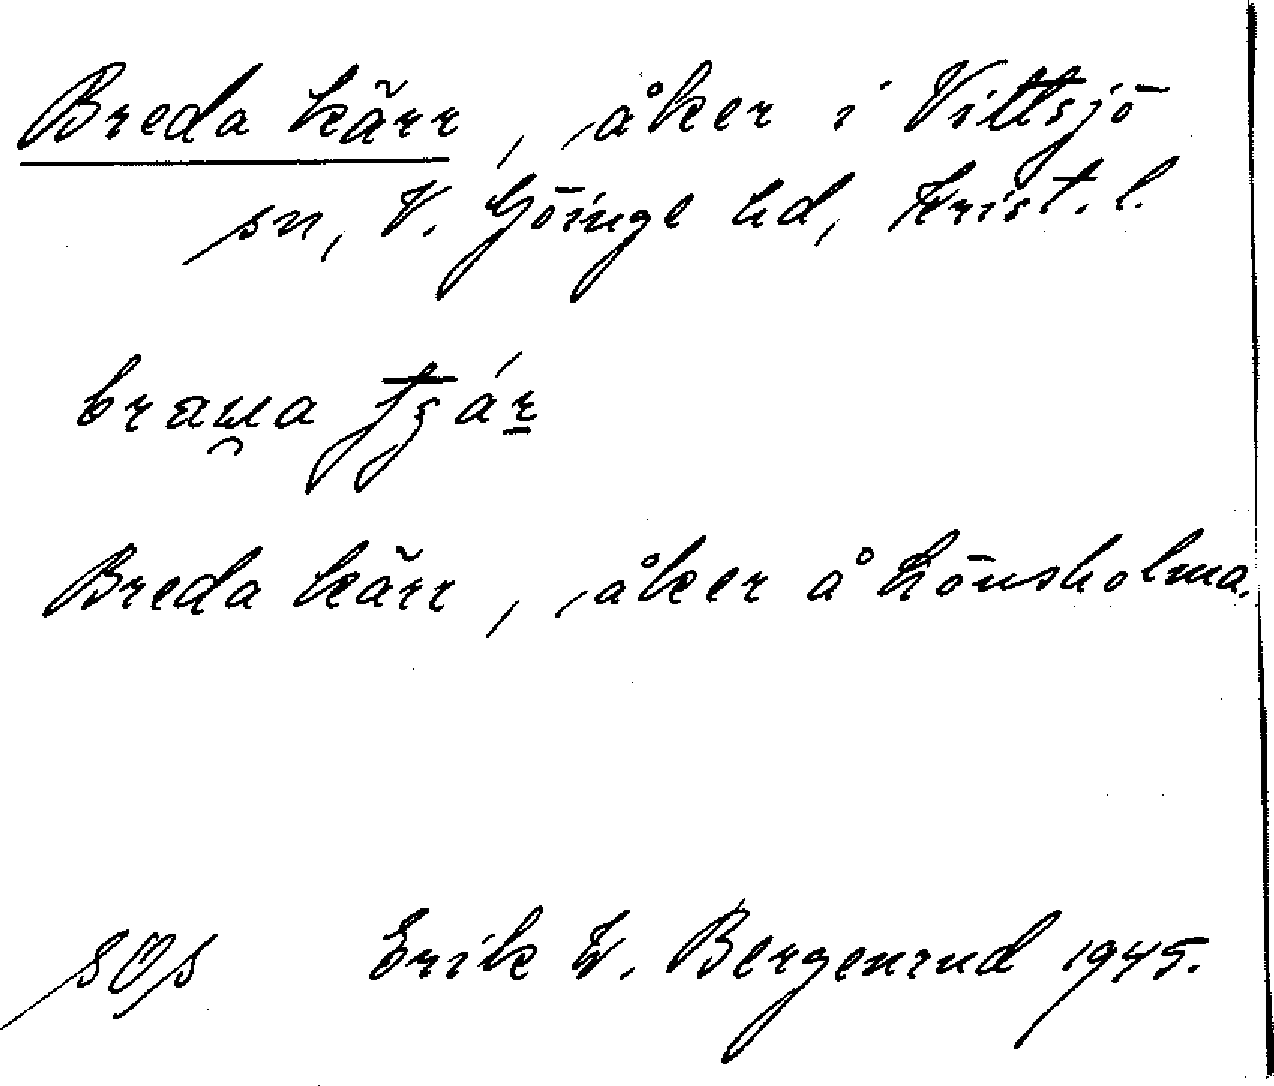 Breda kärr, åker i Vittsjö
sn, V. Göinge hd, Krist. l.
Breda kärr, åker å Hönsholma.
Erik W. Bergenrud 1945.